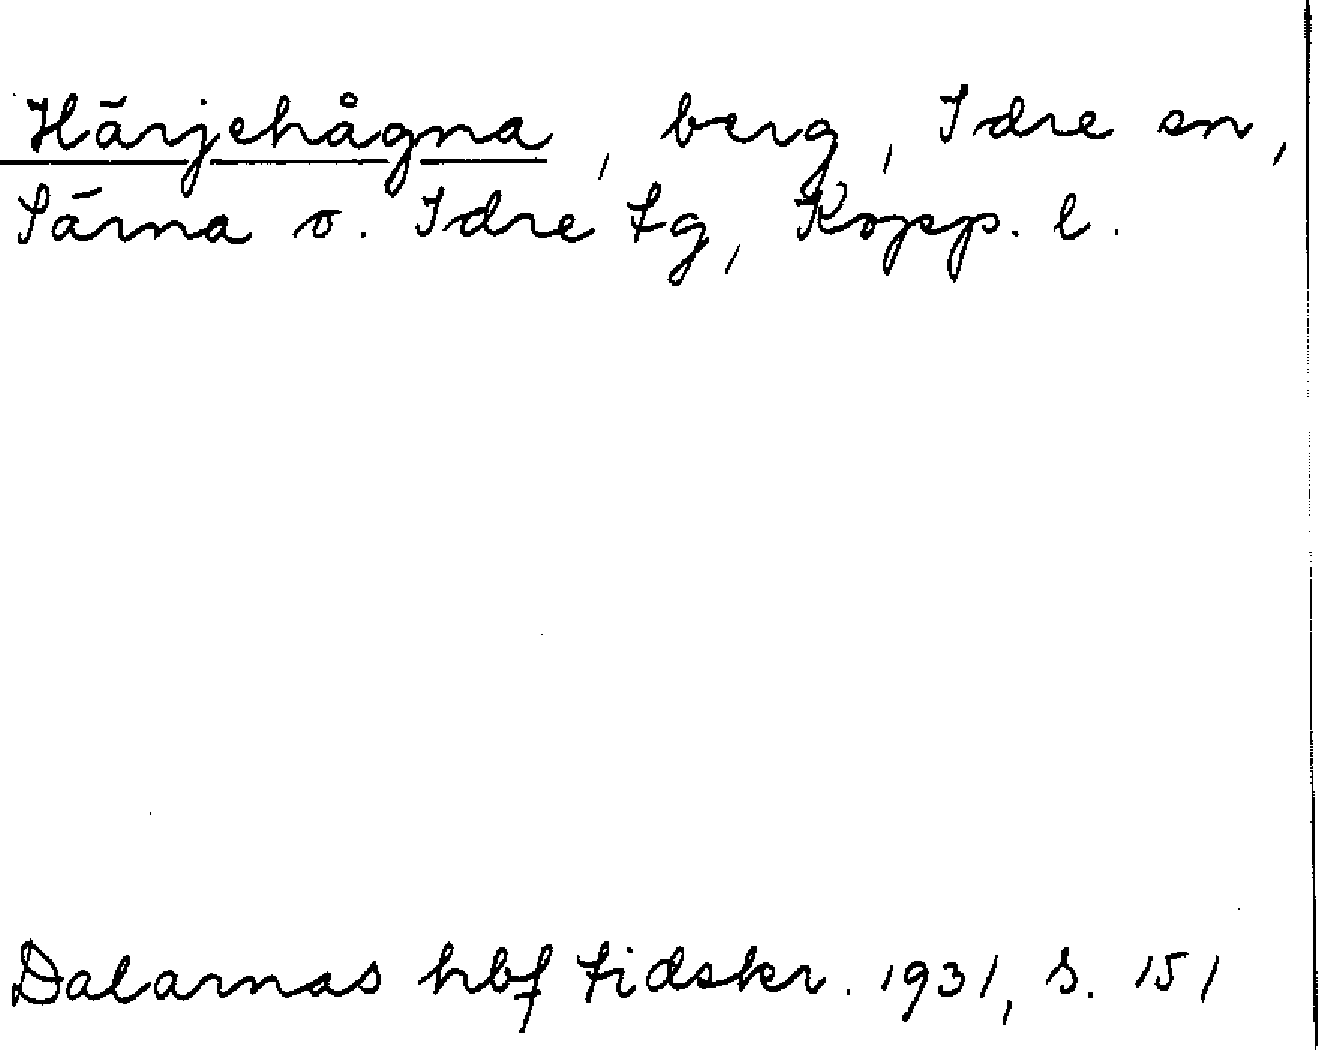 Härjehågna, berg, Idre sn,
Särna o. Idre tg, Kopp. l.
Dalarnas hbf tidskr. 1931, s. 151